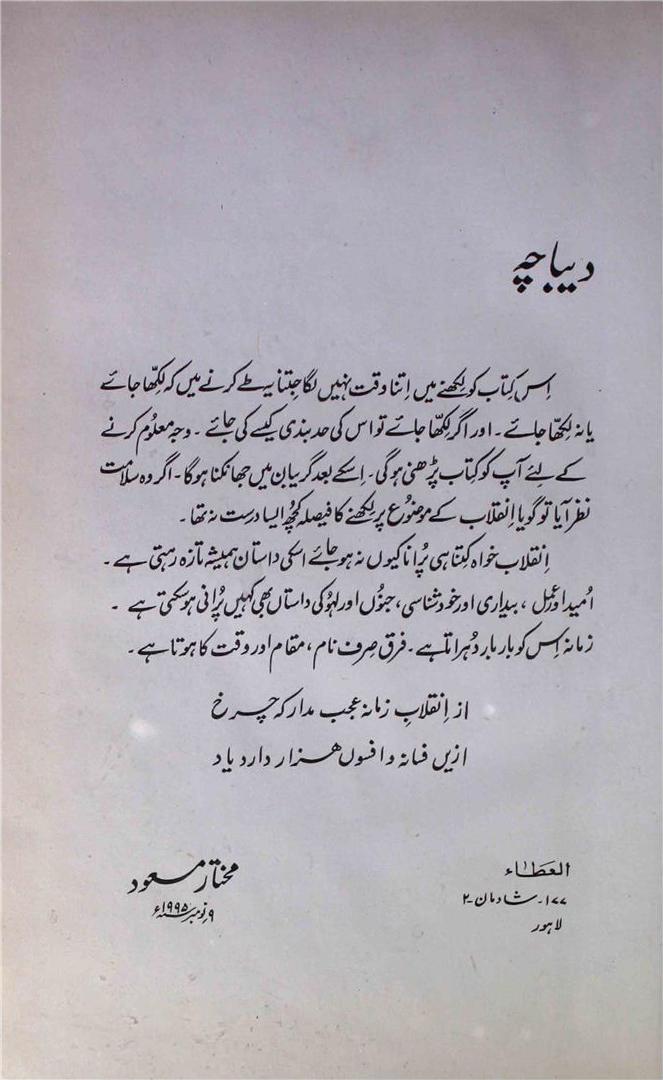 دیباچہ
اِس کِتاب کو لِکھنے میں اِتنا وقت نہیں لگا جتنا یہ طے کرنے میں کہ لِکھّا جائے
یا نہ لِکھّا جائے۔ اور اگر لِکھّا جائے تو اس کی حد بندی کیسے کی جائے۔ وجہ معلُوم کرنے
کے لئے آپ کو کتاب پڑھنی ہو گی۔ اِسکے بعد گریبان میں جھانکنا ہو گا۔ اگر وہ سلامت
نظر آیا تو گویا اِنقلاب کے موضُوع پر لِکھنے کا فیصلہ کُچھ ایسا درست نہ تھا۔
اِنقلاب خواہ کِتنا ہی پُرانا کیوں نہ ہو جائے اسکی داستان ہمیشہ تازہ رہتی ہے۔
اُمید اور عمل، بیداری اور خود شناسی، جنوُں اور لہوُ کی داستاں بھی کہیں پُرانی ہو سکتی ہے۔
زمانہ اِس کو بار بار دُہراتا ہے۔ فرق صِرف نام، مقام اور وقت کا ہوتا ہے۔
از اِنقلابِ زمانہ عجب مدار کہ چرخ
ازیں فسانہ و افسوں ھزار دارد یاد
العطاء
۱۷۷۔ شادمان۔۲
لاہور
مختار مسعود
۹ نومبر ۱۹۹۵ء